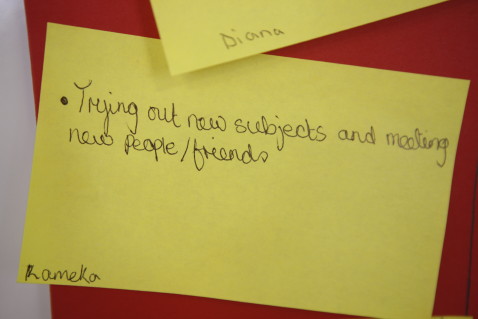 Diana
• Trying out new subjects and meeting
new people/friends
Rameka